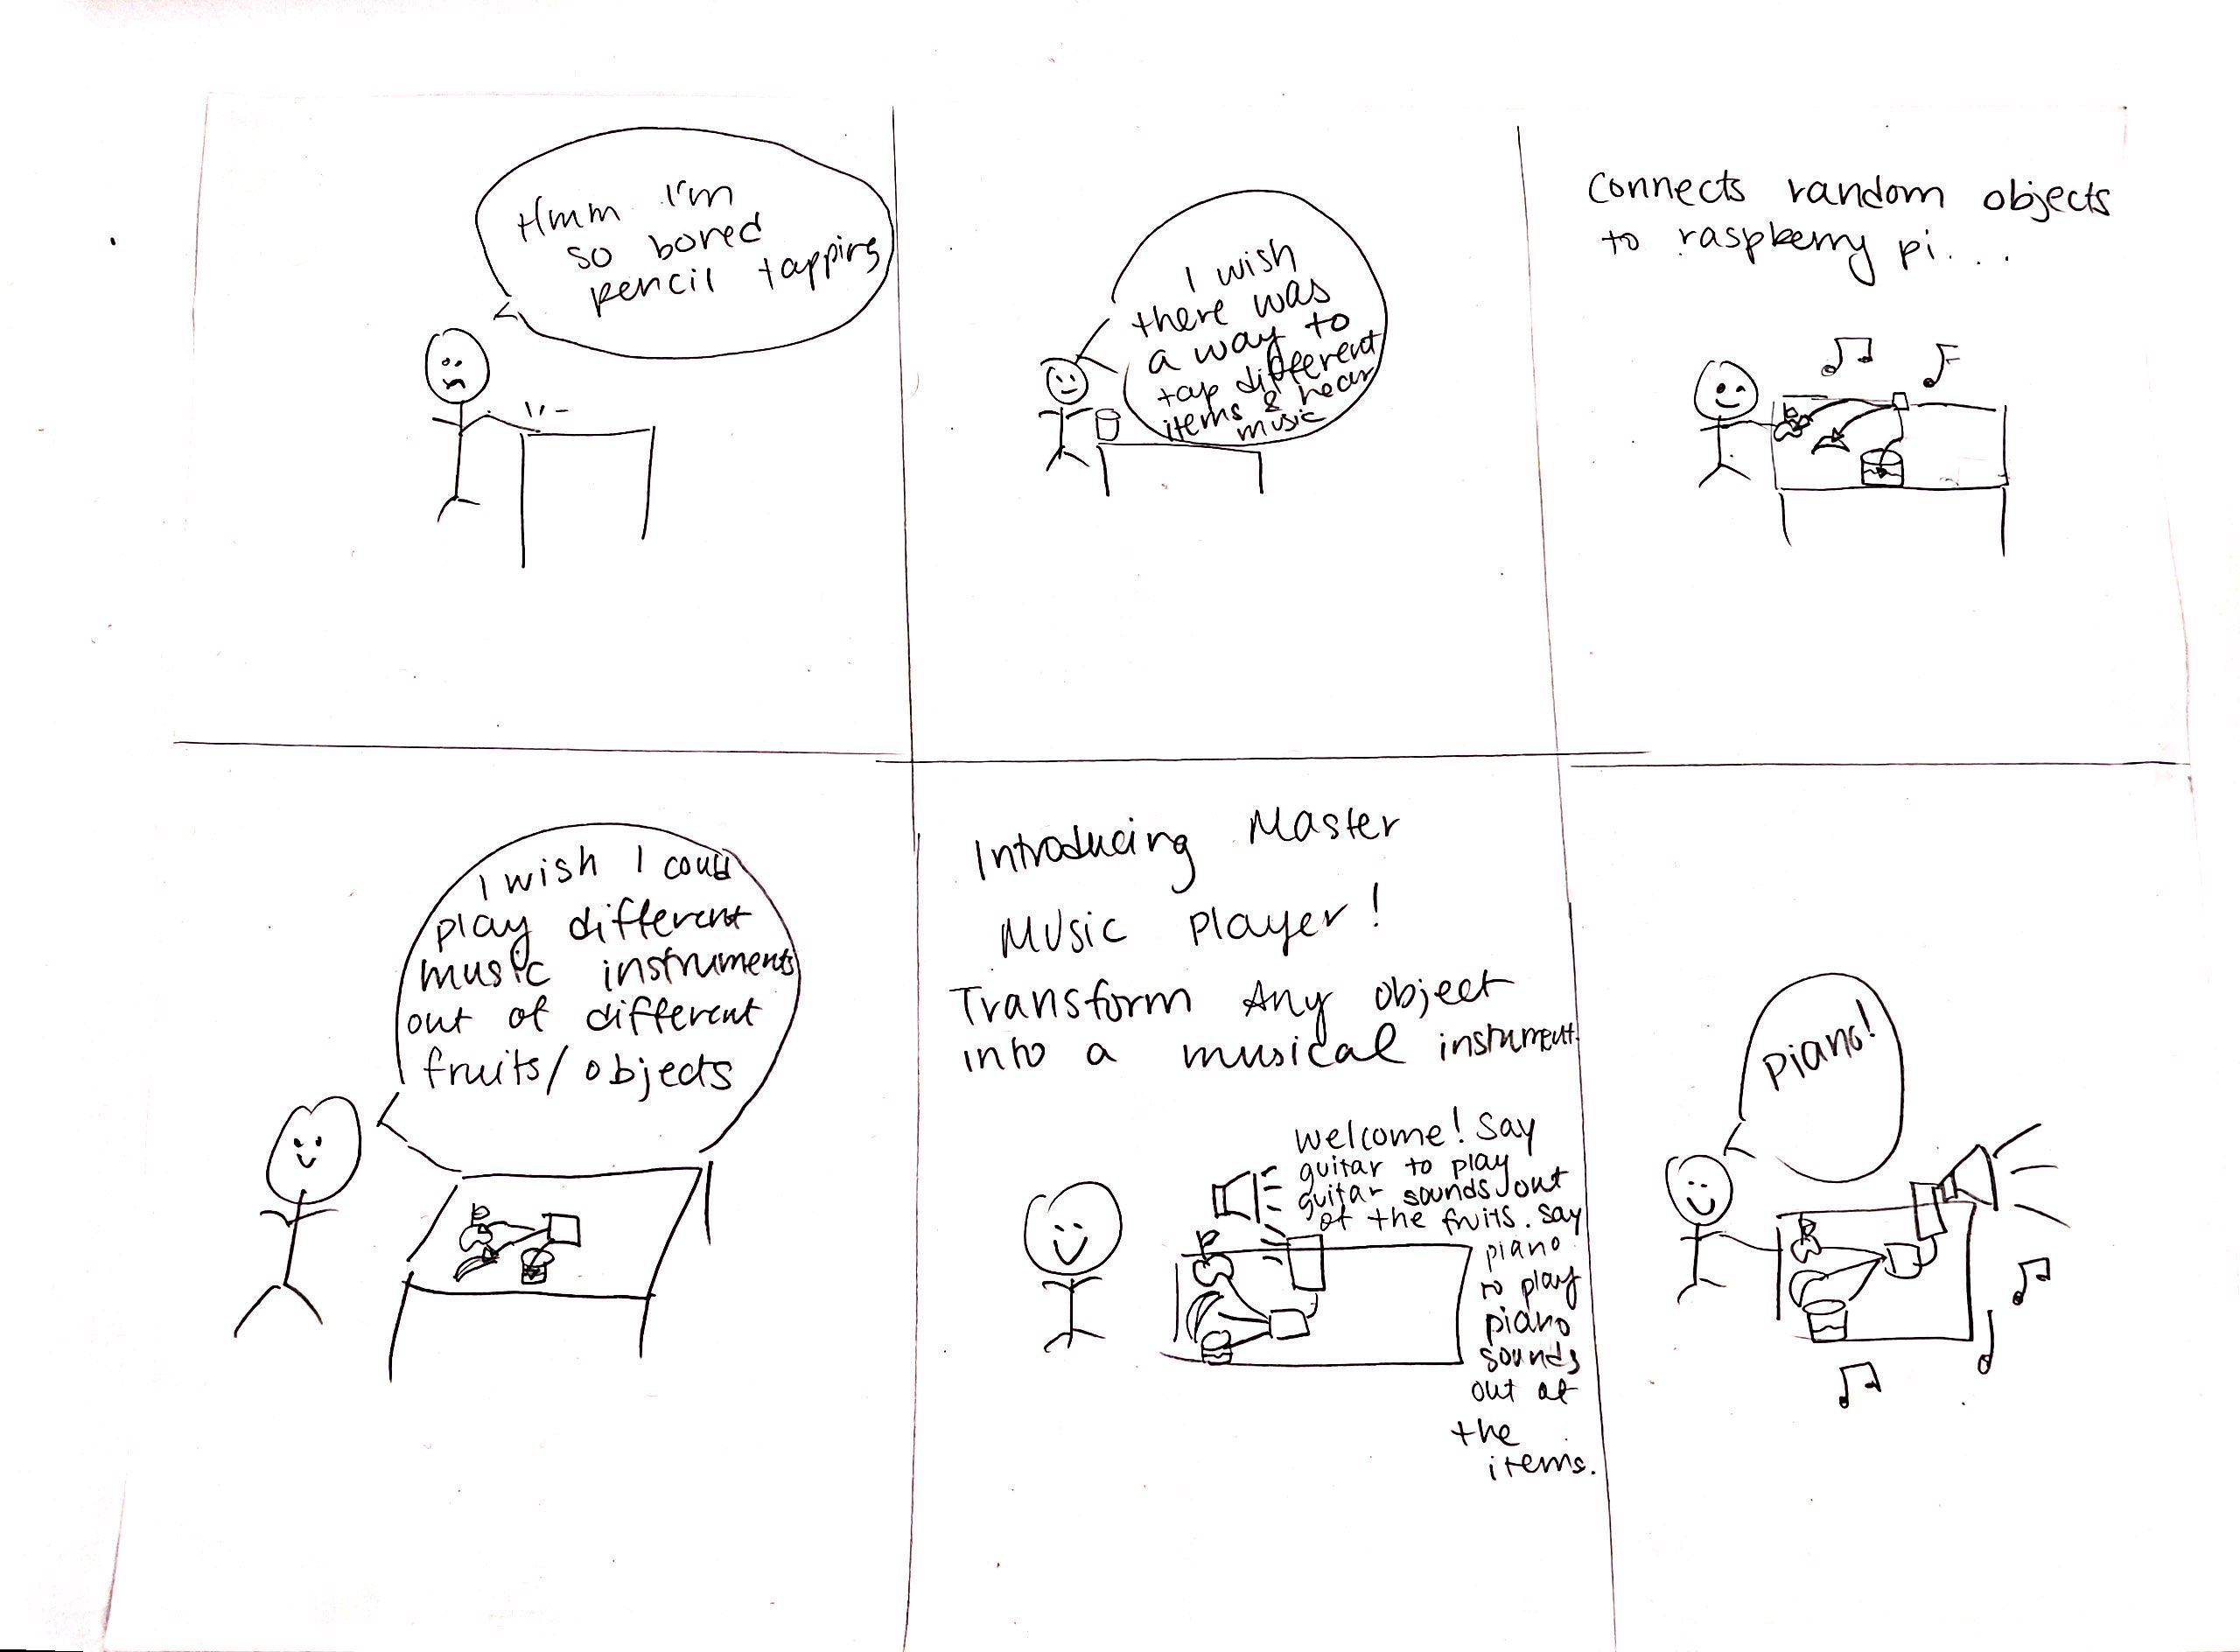 Hmm I'm
so bored
pencil tapping
I wish
there was
a way to
tap different
items & hear
music
Connects random objects
to raspberry pi...
I wish I could
play different
music instruments
out of different
fruits/objects
Introducing Master
Music Player!
Transform Any object
into a musical instrument.
Welcome! Say
guitar to play
guitar sounds out
of the fruits. Say
piano
to play
piano
sounds
out of
the
items.
Piano!